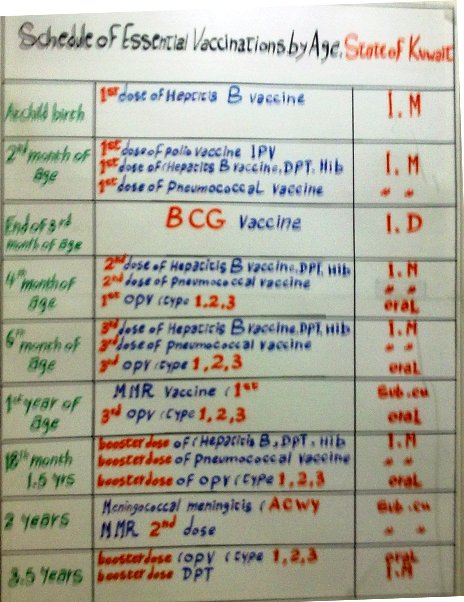 Schedule of Essential Vaccinations by Age, State of Kuwait
At child birth 1st dose of Hepatitis B vaccine I.M
2nd month of age 1st dose of polio vaccine IPV I.M
1st dose of (Hepatitis B vaccine, DPT, Hib
1st dose of Pneumococcal vaccine " "
End of 3rd month of age BCG Vaccine I.D
4th month of age 2nd dose of Hepatitis B vaccine, DPT, Hib I.M
2nd dose of Pneumococcal vaccine " "
1st OPV (type 1,2,3 oral
6th month of age 3rd dose of Hepatitis B vaccine, DPT, Hib I.M
3rd dose of pneumococcal vaccine " "
3rd OPV (type 1,2,3 oral
1st year of age MMR Vaccine (1st Sub.cu
3rd OPV (type 1,2,3 oral
18th month 1.5 yrs booster dose of (Hepatitis B, DPT, Hib I.M
booster dose of Pneumococcal vaccine " "
booster dose of OPV (type 1,2,3) oral
2 years Meningococcal meningitis (ACWY Sub.cu
MMR 2nd dose " "
3.5 Years booster dose (OPV (type 1,2,3 oral
booster dose DPT I.M